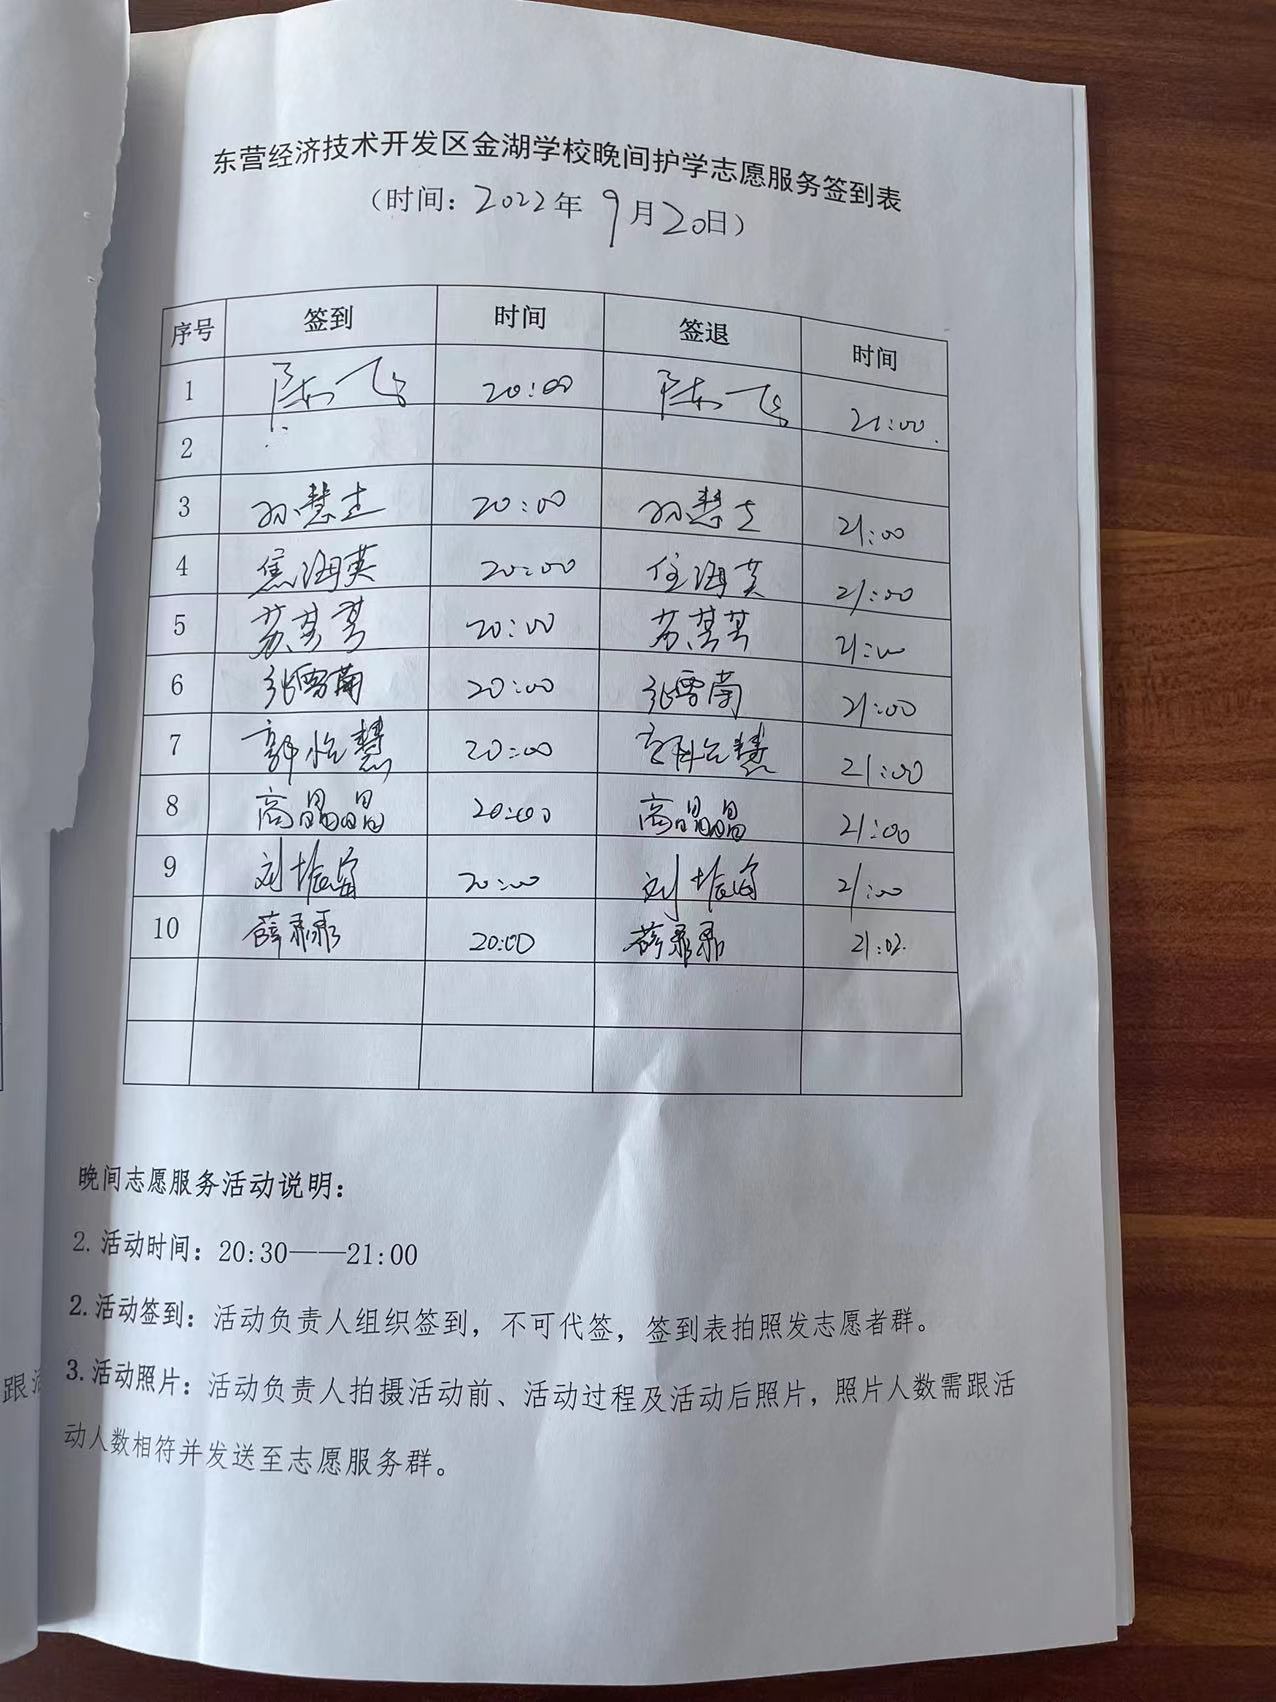 东营经济技术开发区金湖学校晚间护学志愿服务签到表
（时间：2022年 9月20日）
序号 签到 时间 签退 时间
1 陈飞 20:00 陈飞 21:00.
2
3 孙慧 20:00 孙慧 21:00
4 焦海英 20:00 焦海英 21:00
5 苏 20:00 苏 21:00
6 张雪菊 20:00 张雪菊 21:00
7 郭怡慧 20:00 郭怡慧 21:00
8 高晶晶 20:00 高晶晶 21:00
9 刘振 20:00 刘振 21:00
10 薛 20:00 薛 21:02.
晚间志愿服务活动说明：
2.活动时间：20:30——21:00
2.活动签到：活动负责人组织签到，不可代签，签到表拍照发志愿者群。
3.活动照片：活动负责人拍摄活动前、活动过程及活动后照片，照片人数需跟活
动人数相符并发送至志愿服务群。
跟